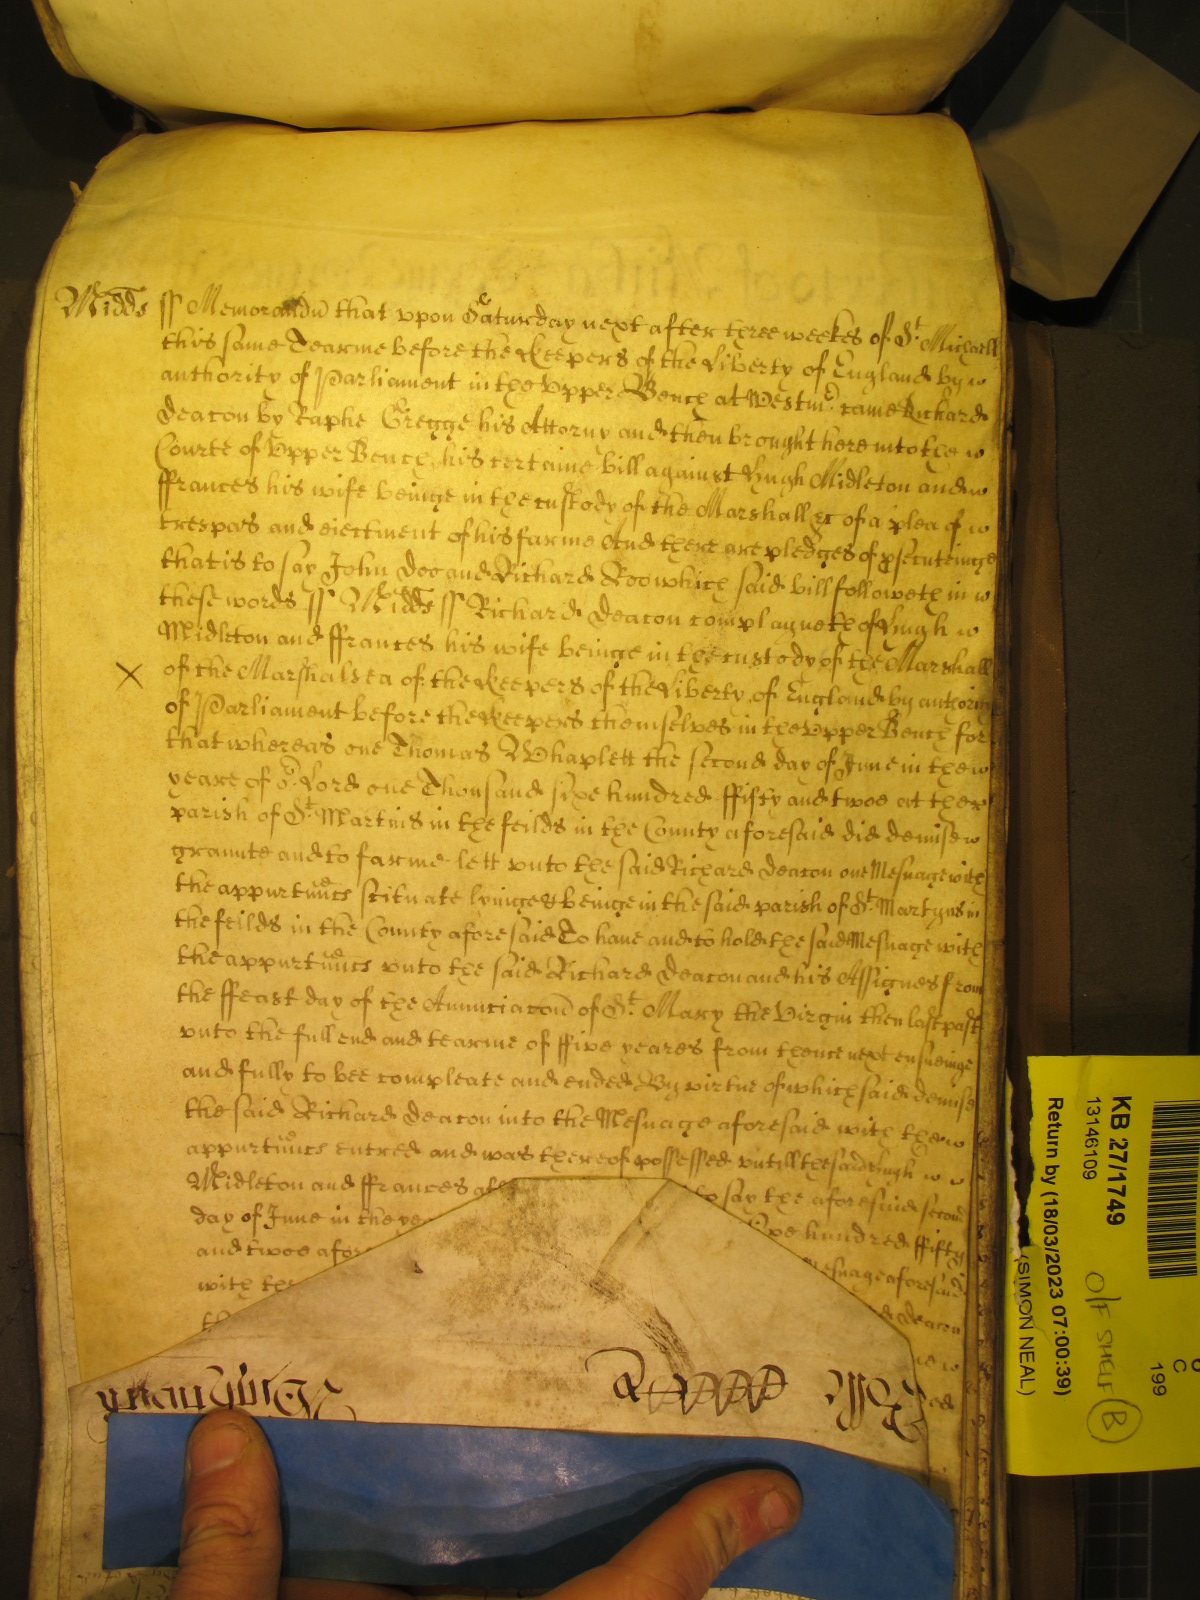 Midds ss Memorandū that upon Saturday next after three weekes of St Michaell
this same Tearme before the Keepers of the Liberty of England by
authority of Parliament in the Upper Bench at Westmr came Richard
Deacon by Raphe Gregge his Attorny and then brought here into the
Courte of Upper Bench his certaine bill against Hugh Midleton and
ffrances his wife beinge in the custody of the Marshall &c of a plea of
trespas and eiectment of his farme And there are pledges of psecuteinge
that is to say John Doo and Richard Roo which said bill followeth in
these words ss Midds ss Richard Deacon complayneth of Hugh
Midleton and ffrances his wife beinge in the custody of the Marshall
of the Marshalsea of the Keepers of the Liberty of England by authority
of Parliament before the Keepers themselves in the Upper Bench for
that whereas one Thomas Whaplett the second day of June in the
yeare of or Lord one Thousand sixe hundred ffifty and twoe at the
parish of St Martins in the feilds in the County aforesaid did demise
graunte and to farme lett unto the said Richard Deacon one Mesuage with
the appurtnncs scituate lyinge & beinge in the said parish of St Martyns in
the feilds in the County aforesaid To have and to hold the said Mesuage with
the appurtnncs unto the said Richard Deacon and his Assignes from
the ffeast day of the Annunciacoñ of St Mary the Virgin then last past
unto the full end and tearme of ffive yeares from thence next ensueinge
and fully to bee compleate and ended By virtue of which said demise
the said Richard Deacon into the Mesuage aforesaid with the
appurtnncs entred and was thereof possessed untill the said Hugh
Midleton and ffrances to say the aforesaid second
day of June in the hundred ffifty
and twoe Mesuage aforesaid
with the Deacon
KB 27/1749
13146109
Return by (18/03/2023 07:00:39)
(SIMON NEAL)
O/F SHELF B
C
199